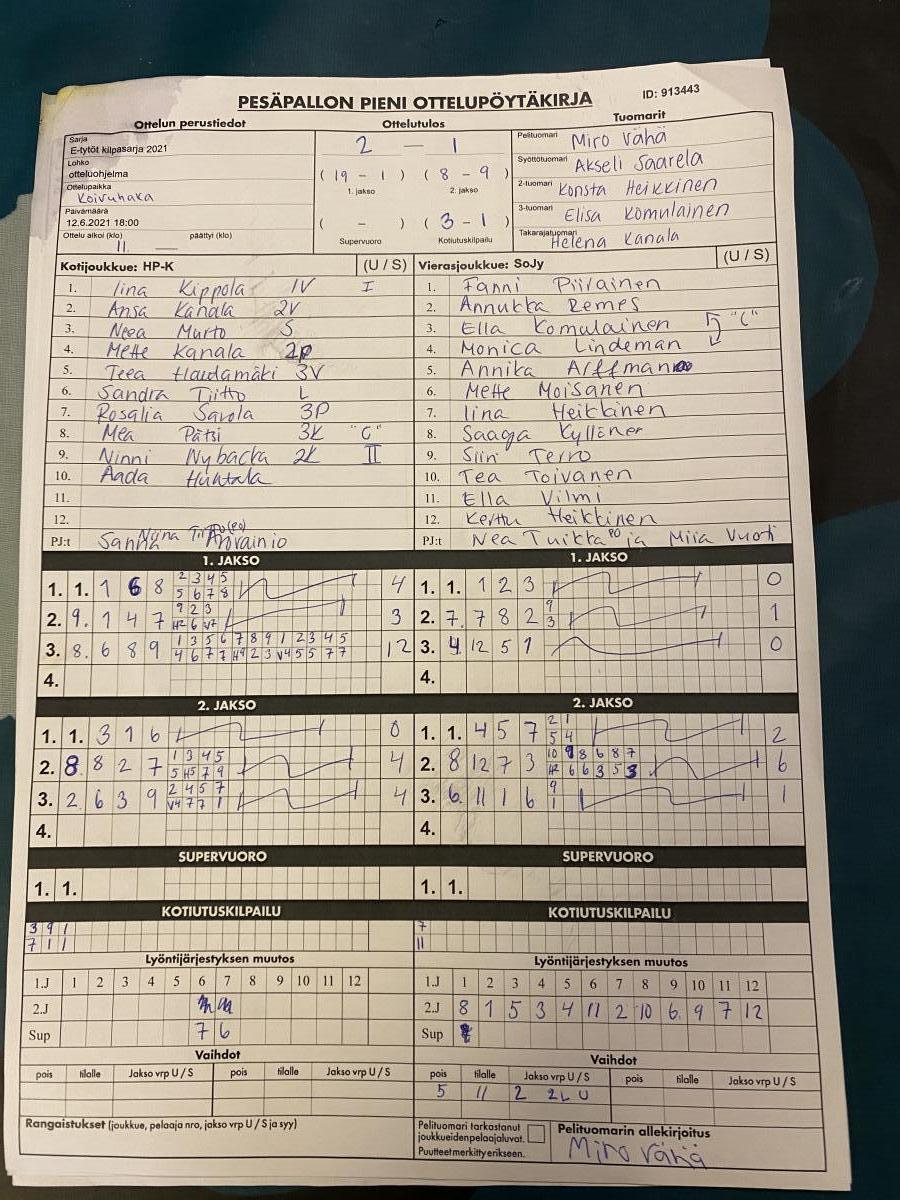 PESÄPALLON PIENI OTTELUPÖYTÄKIRJA
ID: 913443
Ottelun perustiedot
Ottelutulos
Tuomarit
Sarja
E-tytöt kilpasarja 2021
Lohko
otteluohjelma
Ottelupaikka
Koivuhaka
Päivämäärä
12.6.2021 18:00
Ottelu alkoi (klo) 11 päättyi (klo)
2 — 1
( 19 - 1 ) ( 8 - 9 )
1. jakso 2. jakso
( - ) ( 3 - 1 )
Supervuoro Kotiutuskilpailu
Pelituomari Miro Vähä
Syöttötuomari Akseli Saarela
2-tuomari Konsta Heikkinen
3-tuomari Elisa Komulainen
Takarajatuomari Helena Kanala
Kotijoukkue: HP-K (U / S)
1. Iina Kippola 1V I
2. Ansa Kanala 2V
3. Neea Murto S
4. Mette Kanala 2P
5. Teea Hautamäki 3V
6. Sandra Tiitto L
7. Rosalia Savola 3P
8. Mea Pätsi 3K "C"
9. Ninni Nybacka 2K II
10. Aada Huhtala
11.
12.
PJ:t Sanna
Vierasjoukkue: SoJy (U / S)
1. Fanni Piirainen
2. Annukka Remes
3. Ella Komulainen "C"
4. Monica Lindeman
5. Annika Arffman
6. Mette Moisanen
7. Iina Heikkinen
8. Saaga Kyllönen
9. Siiri Terro
10. Tea Toivanen
11. Ella Vilmi
12. Kerttu Heikkinen
PJ:t Nea Tuikka PO ja Miia Vuoti
1. JAKSO
1. 1. 1 6 8 2 3 4 5 4
5 6 7 8
2. 9. 1 4 7 9 2 3 3
H2 6 V7
3. 8. 6 8 9 1 3 5 6 7 8 9 1 2 3 4 5 12
4 6 7 7 H9 2 3 V4 5 5 7 7
4.
1. JAKSO
1. 1. 1 2 3 0
2. 7. 7 8 2 9 1
3
3. 4. 12 5 1 0
4.
2. JAKSO
1. 1. 3 1 6 0
2. 8. 8 2 7 1 3 4 5 4
5 H5 7 9
3. 2. 6 3 9 2 4 5 7 4
V4 7 7 1
4.
2. JAKSO
1. 1. 4 5 7 2 1 2
5 4
2. 8 12 7 3 10 9 8 6 8 7 6
H2 6 6 3 5 3
3. 6. 11 1 6 9 1
1
4.
SUPERVUORO
1. 1.
SUPERVUORO
1. 1.
KOTIUTUSKILPAILU
3 9 1
7 1 1
KOTIUTUSKILPAILU
7
11
Lyöntijärjestyksen muutos
1.J 1 2 3 4 5 6 7 8 9 10 11 12
2.J
Sup 7 6
Lyöntijärjestyksen muutos
1.J 1 2 3 4 5 6 7 8 9 10 11 12
2.J 8 1 5 3 4 11 2 10 6. 9 7 12
Sup
Vaihdot
pois tilalle Jakso vrp U / S pois tilalle Jakso vrp U / S
Vaihdot
pois tilalle Jakso vrp U / S pois tilalle Jakso vrp U / S
5 11 2 2L U
Rangaistukset (joukkue, pelaaja nro, jakso vrp U / S ja syy)
Pelituomari tarkastanut
joukkueidenpelaajaluvat.
Puutteet merkitty erikseen.
Pelituomarin allekirjoitus
Miro Vähä